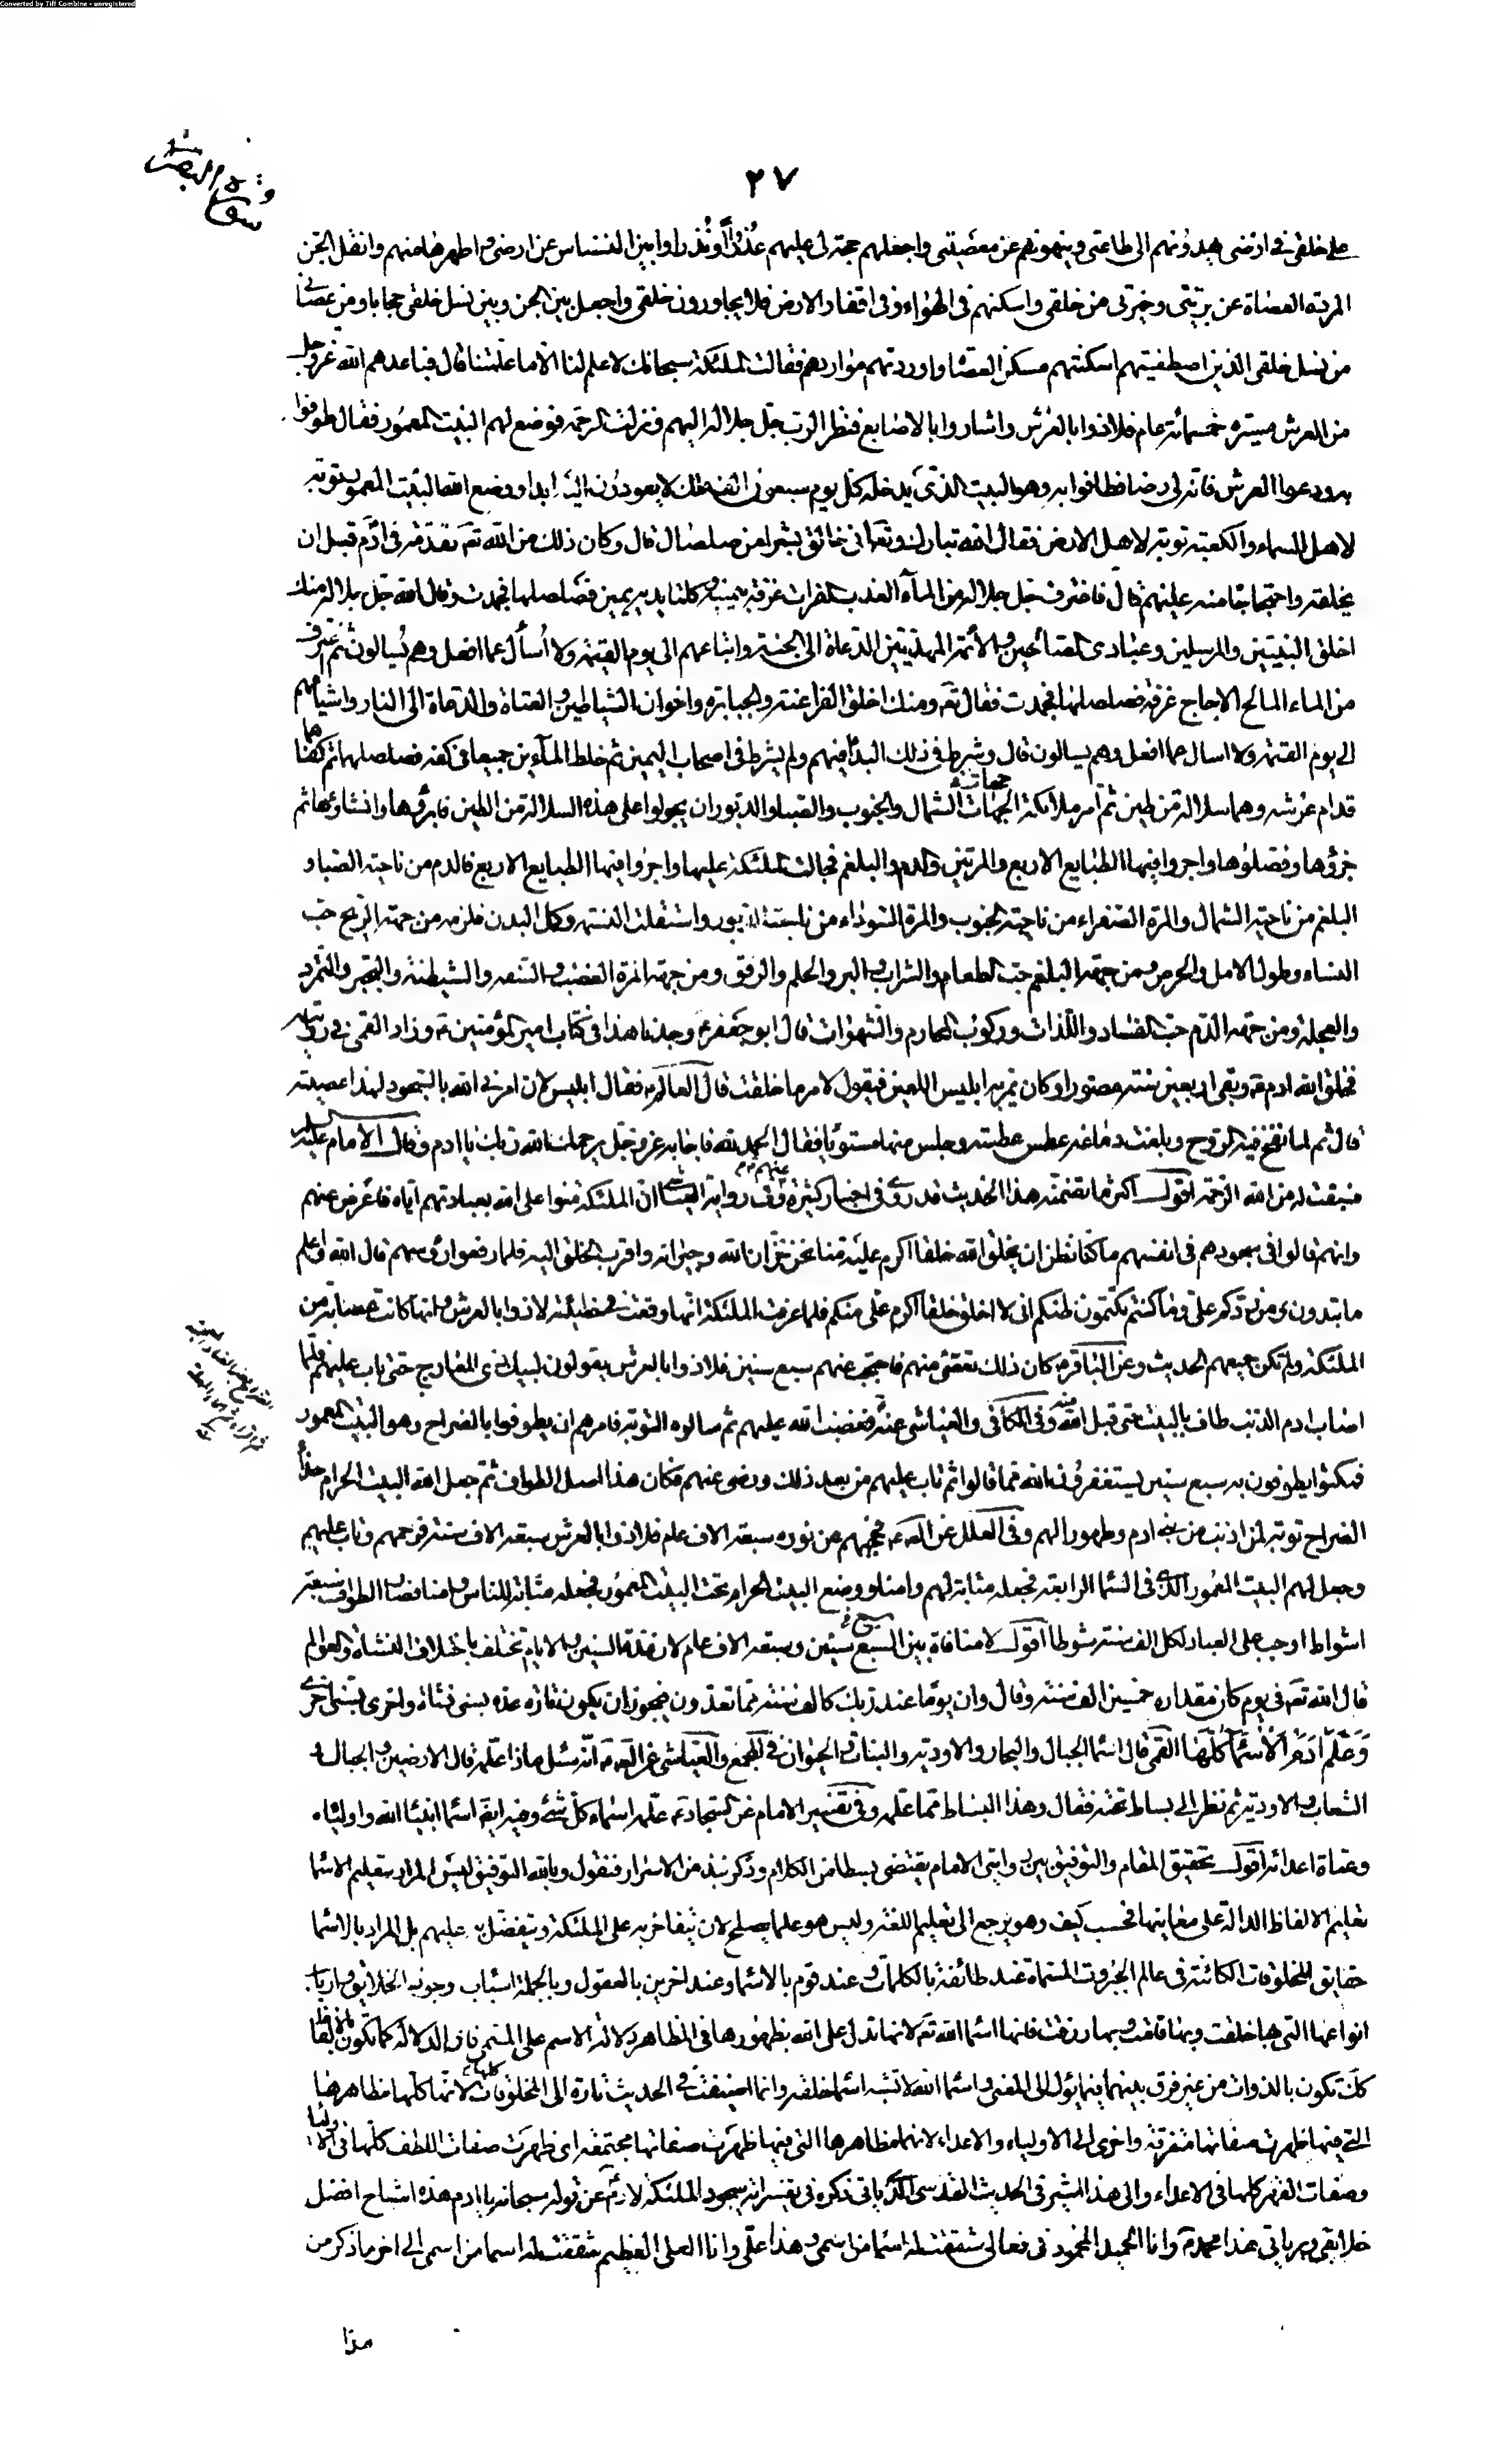 Converted by Tiff Combine - unregistered
٢٧
سورة البقرة
على خلقى فى ارضى يهدونهم الى طاعتى وينهونهم عن معصيتى واجعلهم حجة لى عليهم عُذْرًا أو نُذرا وابين النسناس عن ارضى واطهرها منهم وانقل الجن
المردة العصاة عن بريتى وخيرتى من خلقى واسكنهم فى الهواء وفى اقفار الارض فلا يجاورون خلقى واجعل بين الجن وبين نسل خلقى حجابا ومن عصانى
من نسل خلقى الذين اصطفيتهم اسكنتهم مسكن العصاة واوردتهم مواردهم فقالت الملئكة سبحانك لا علم لنا الا ما علمتنا قال فباعدهم الله عز وجل
من العرش مسيرة خمسمائة عام فلاذوا بالعرش واشاروا بالاصابع فنظر الرب جل جلاله اليهم ونزلت الرحمة فوضع لهم البيت المعمور فقال طوفوا
به ودعوا العرش فانه لى رضا فطافوا به وهو البيت الذى يدخله كل يوم سبعون الف ملك لا يعودون اليه ابدا ووضع الله البيت المعمور توبة
لاهل السماء والكعبة توبة لاهل الارض فقال الله تبارك وتعالى انى خالق بشرا من صلصال قال وكان ذلك من الله تعـ تقدمة فى ادم قبل ان
يخلقه واحتجاجا منه عليهم قال فاغترف جل جلاله من الماء العذب الفرات غرفة بيمينه وكلتا يديه يمين فصلصلها فجمدت وقال الله جل جلاله منك
اخلق النبيين والمرسلين وعبادى الصالحين والأئمة المهديين الدعاة الى الجنة واتباعهم الى يوم القيمة ولا أسأل عما افعل وهم يُسالون ثم اغترف
من الماء المالح الاجاج غرفة فصلصلها فجمدت فقال تعـ ومنك اخلق الفراعنة والجبابرة واخوان الشياطين والعتاة والدعاة الى النار واشياعهم
الى يوم القيمة ولا اسال عما افعل وهم يسالون قال وشرط فى ذلك البدا فيهم ولم يشرط فى اصحاب اليمين ثم خلط المآءين جميعا فى كفه فصلصلهما ثم كفاهما
قدام عرشه وهما سلالة من طين ثم امر ملائكة الجهات الشمال والجنوب والصبا والدبور ان يجولوا على هذه السلالة من الطين فابرؤها وانشاؤها ثم
جزؤها وفصلوها واجروا فيها الطبايع الاربع والمرتين والدم والبلغم فجالت الملئكة عليها واجروا فيها الطبايع الاربع فالدم من ناحية الصبا و
البلغم من ناحية الشمال والمرة الصفراء من ناحية الجنوب والمرة السوداء من ناحية الدبور واستقلت النسمة وكمل البدن فلزمه من جهة الريح حب
النساء وطول الامل والحرص ومن جهة البلغم حب الطعام والشراب والبر والحلم والرفق ومن جهة المرة الغضب والسفه والشيطنة والتجبر والتمرد
والعجلة ومن جهة الدم حب الفساد واللذات وركوب المحارم والشهوات قال ابو جعفر ع وجدنا هذا فى كتاب امير المؤمنين ع وزاد القمى فى روايته
فخلق الله ادم ع وبقى اربعين سنة مصورا وكان يمر به ابليس اللعين فيقول لامر ما خلقت قال العالم ع فقال ابليس لان امرنى الله بالسجود لهذا عصيته
قال ثم لما نفخ فيه الروح وبلغت دماغه عطس عطسة وجلس منها مستويا فقال الحمد لله فاجابه عز وجل يرحمك الله ربك يا ادم وقال الامام عليه السلام
فسبقت له من الله الرحمة اقول اكثر ما تضمنه هذا الحديث قد روى فى اخبار كثيرة وفى رواية العياشى ان الملئكة منوا على الله بعبادتهم اياه فاعرض عنهم
وانهم قالوا فى سجودهم فى انفسهم ما كنا نظن ان يخلق الله خلقا اكرم عليه منا نحن خزان الله وجيرانه واقرب الخلق اليه فلما رفعوا رؤسهم قال الله واعلم
ما تبدون من ردكم على وما كنتم تكتمون ظنكم انى لا اخلق خلقا اكرم على منكم فلما عرفت الملئكة انها وقعت فى خطيئة لاذوا بالعرش وانها كانت عصابة من
الملئكة ولم تكن جميعهم الحديث وعن الباقر ع كان ذلك تعقبى منهم فاحتجب عنهم سبع سنين فلاذوا بالعرش يقولون لبيك ذى المعارج حتى تاب عليهم فلما
اصاب ادم الذنب طاف بالبيت حتى قبل الله منه وفى الكافى والعياشى عنه فغضب الله عليهم ثم سالوه التوبة فامرهم ان يطوفوا بالضراح وهو البيت المعمور
فمكثوا يطوفون به سبع سنين يستغفرون الله مما قالوا ثم تاب عليهم من بعد ذلك ورضى عنهم فكان هذا اصل الطواف ثم جعل الله البيت الحرام حذاء
الضراح توبة لمن اذنب من بنى ادم وطهورا لهم وفى العلل عن الصـ ع فحجبهم عن نوره سبعة الاف عام فلاذوا بالعرش سبعة الاف سنة فرحمهم وتاب عليهم
وجعل لهم البيت المعمور الذى فى السماء الرابعة فجعله مثابة لهم وامنا ووضع البيت الحرام تحت البيت المعمور فجعله مثابة للناس وامنا فصار الطواف سبعة
اشواط اوجب على العباد لكل الف سنة شوطا اقول لا منافاة بين السبع سنين وسبعة الاف عام لان مدة السنين والايام تختلف باختلاف النشاة والعوالم
قال الله تعـ فى يوم كان مقداره خمسين الف سنة وقال وان يوما عند ربك كالف سنة مما تعدون فيجوز ان يكون تارة عده بسنى نشاة واخرى بسنى اخرى
وَعَلَّمَ اٰدَمَ الْأَسْمَاءَ كُلَّهَا القمى قال اسماء الجبال والبحار والاودية والنبات والحيوان فى المجمع والعياشى عن الصـ ع انه سئل ماذا علمه قال الارضين والجبال و
الشعاب والاودية ثم نظر الى بساط تحته فقال وهذا البساط مما علمه وفى تفسير الامام عن السجاد ع علمه اسماء كل شئ وفيه ايضا اسماء انبياء الله واوليائه
وعتاة اعدائه اقول تحقيق المقام والتوفيق بين روايتى الامام يقتضى بسطا من الكلام وذكر نبذ من الاسرار فنقول وبالله التوفيق ليس المراد بتعليم الاسماء
تعليم الالفاظ الدالة على معانيها فحسب كيف وهو يرجع الى تعليم اللغة وليس هو علما يصلح لان يتفاخر به على الملئكة ويتفضل به عليهم بل المراد بالاسماء
حقايق المخلوقات الكائنة فى عالم الجبروت المسماة عند طائفة بالكلمات وعند قوم بالاسماء وعند اخرين بالعقول وبالجملة اسباب وجود الخلائق وارباب
انواعها التى بها خلقت وبها قامت وبها رزقت فانها اسماء الله تعـ لانها تدل على الله بظهورها فى المظاهر دلالة الاسم على المسمى فان الدلالة كما تكون بالالفاظ
كك تكون بالذوات من غير فرق بينهما فيما يؤل الى المعنى واسماء الله لا تشبه اسماء خلقه وانما اضيفت فى الحديث تارة الى المخلوقات كلها لانها كلها مظاهرها
التى فيها ظهرت صفاتها متفرقة واخرى الى الاولياء والاعداء لانهما مظاهرها التى فيها ظهرت صفاتها مجتمعة اى ظهرت صفات اللطف كلها فى الاولياء
وصفات القهر كلها فى الاعداء والى هذا اشير فى الحديث القدسى الذى ياتى ذكره فى تفسير اية سجود الملئكة لادم ع عن قوله سبحانه يا ادم هذه اشباح افضل
خلايقى وبرياتى هذا محمد وانا الحميد المحمود فى فعالى شققت له اسما من اسمى وهذا على وانا العلى العظيم شققت له اسما من اسمى الى اخر ما ذكر من
هذا